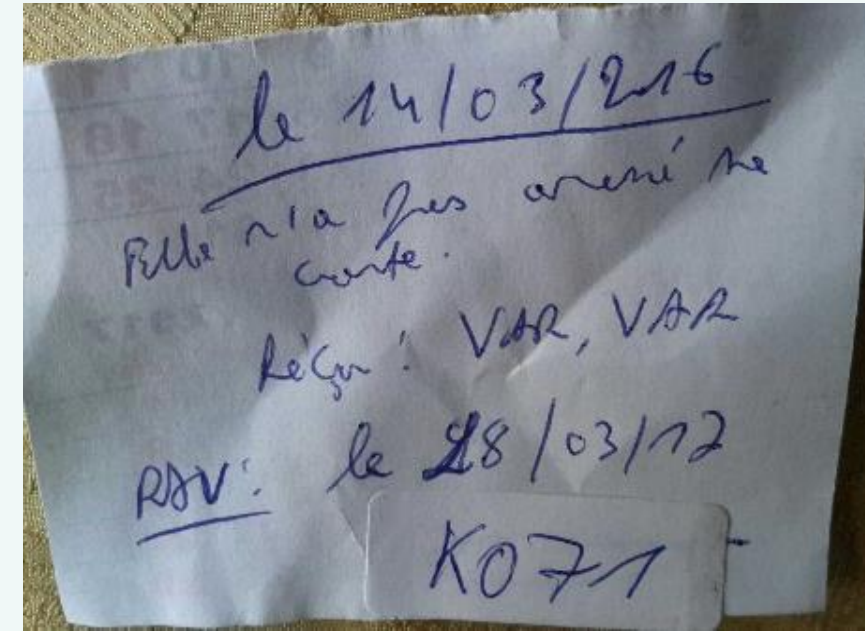 le 14/03/2016
Elle n'a pas amené sa
carte.
Réçu : VAR, VAR
RDV : le 28/03/17
K071